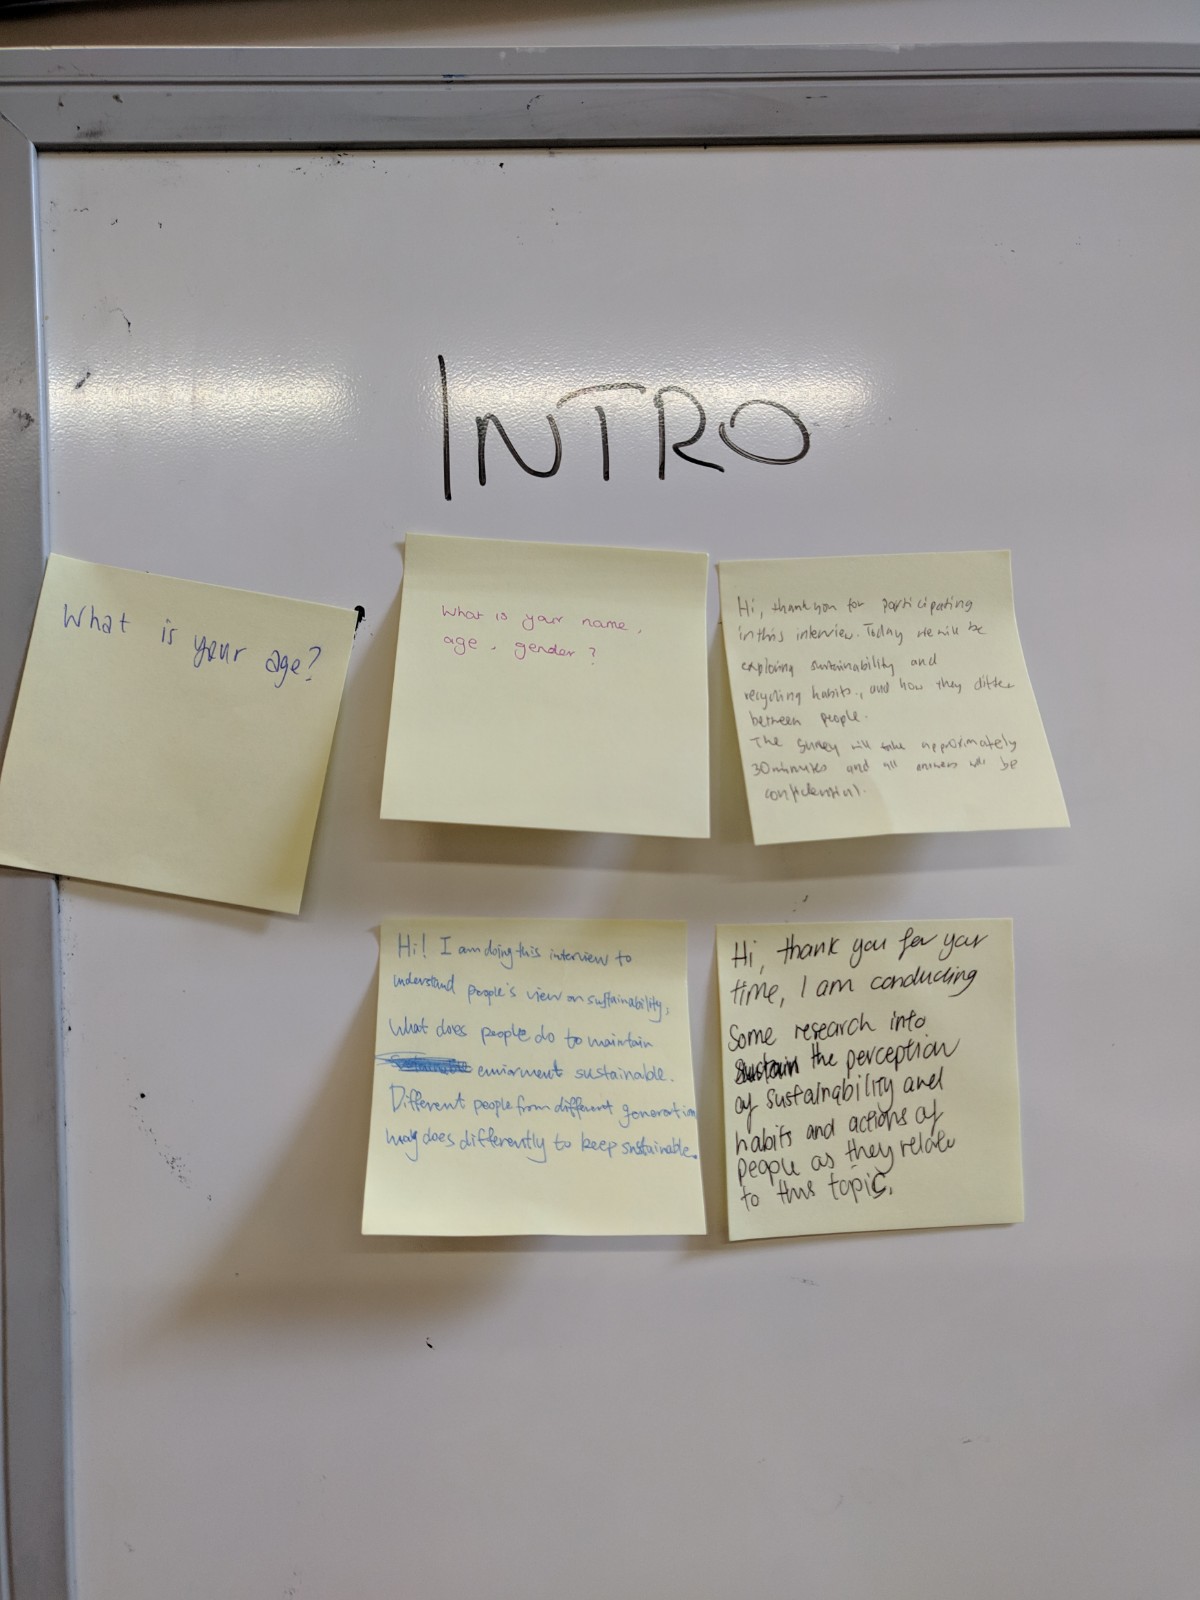 INTRO
What is your age?
What is your name,
age, gender?
Hi, thank you for participating
in this interview. Today we will be
exploring sustainability and
recycling habits, and how they differ
between people.
The survey will take approximately
30 minutes and all answers will be
confidential.
Hi! I am doing this interview to
understand people's view on sustainability,
What does people do to maintain
enviorment sustainable.
Different people from different generation
may does differently to keep sustainable.
Hi, thank you for your
time, I am conducting
Some research into
the perception
of sustainability and
habits and actions of
people as they relate
to this topic.